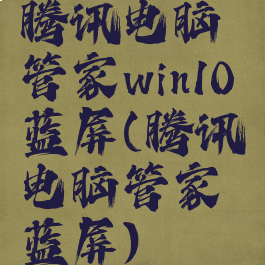 腾讯电脑
管家win10
蓝屏(腾讯
电脑管家
蓝屏)